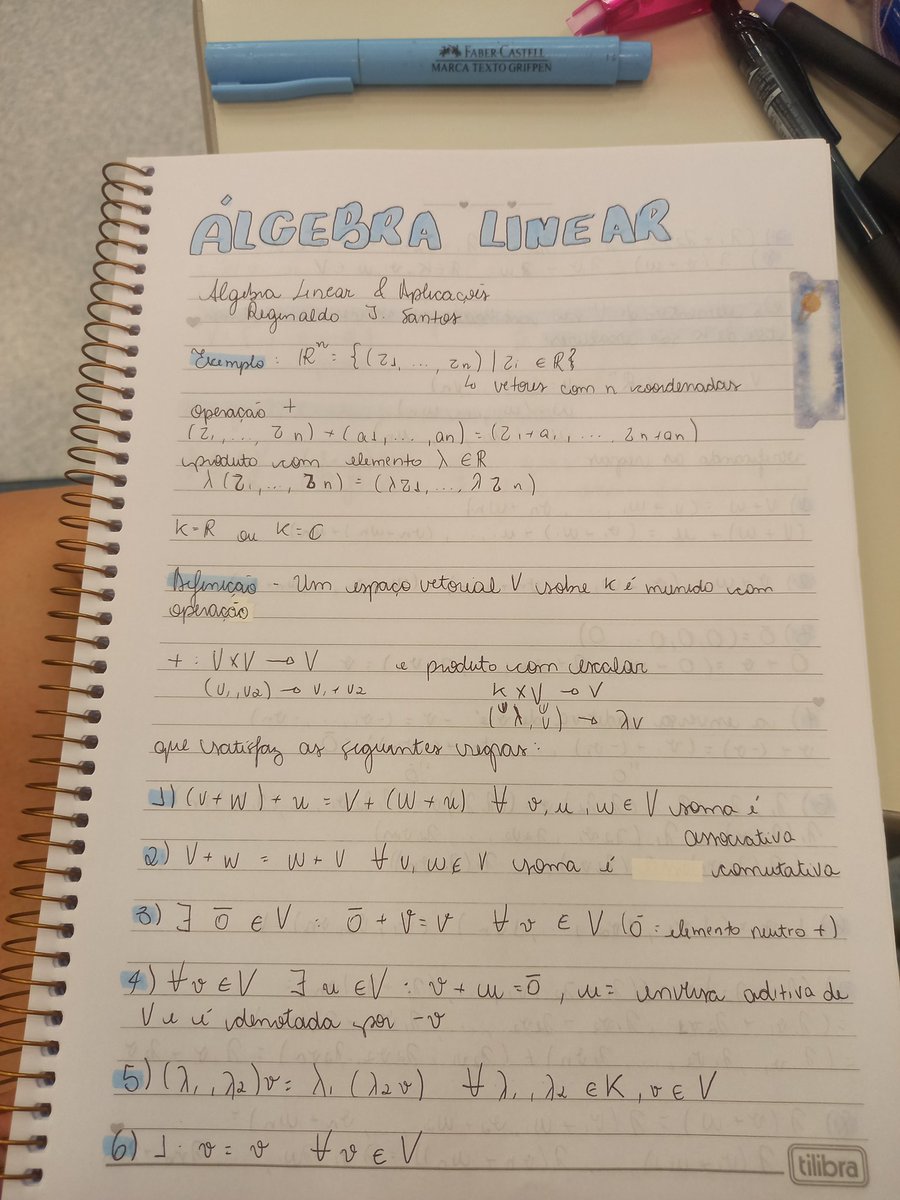 FABER-CASTELL
MARCA TEXTO GRIFPEN
ÁLGEBRA LINEAR
Álgebra Linear & Aplicações
Reginaldo J. Santos
Exemplo: ℝⁿ = {(z1, ..., zn) | zi ∈ R}
↳ vetores com n coordenadas
operação +
(z1, ..., zn) + (a1, ..., an) = (z1+a1, ..., zn+an)
produto com elemento λ ∈ R
λ(z1, ..., zn) = (λz1, ..., λzn)
K=R ou K=C
Definição - Um espaço vetorial V sobre K é munido com
operação
+ : V×V → V e produto com escalar
(v1, v2) → v1+v2 K×V → V
(λ, v) → λv
que satisfaz as seguintes regras:
1) (v+w)+u = v+(w+u) ∀ v,u,w ∈ V soma é
associativa
2) v+w = w+v ∀ v,w ∈ V soma é comutativa
3) ∃ ō ∈ V : ō + v = v ∀ v ∈ V (ō = elemento neutro +)
4) ∀v ∈ V ∃ u ∈ V : v + u = ō, u = inversa aditiva de
V e é denotada por -v
5) (λ1, λ2)v = λ1(λ2v) ∀ λ1, λ2 ∈ K, v ∈ V
6) 1. v = v ∀ v ∈ V
tilibra